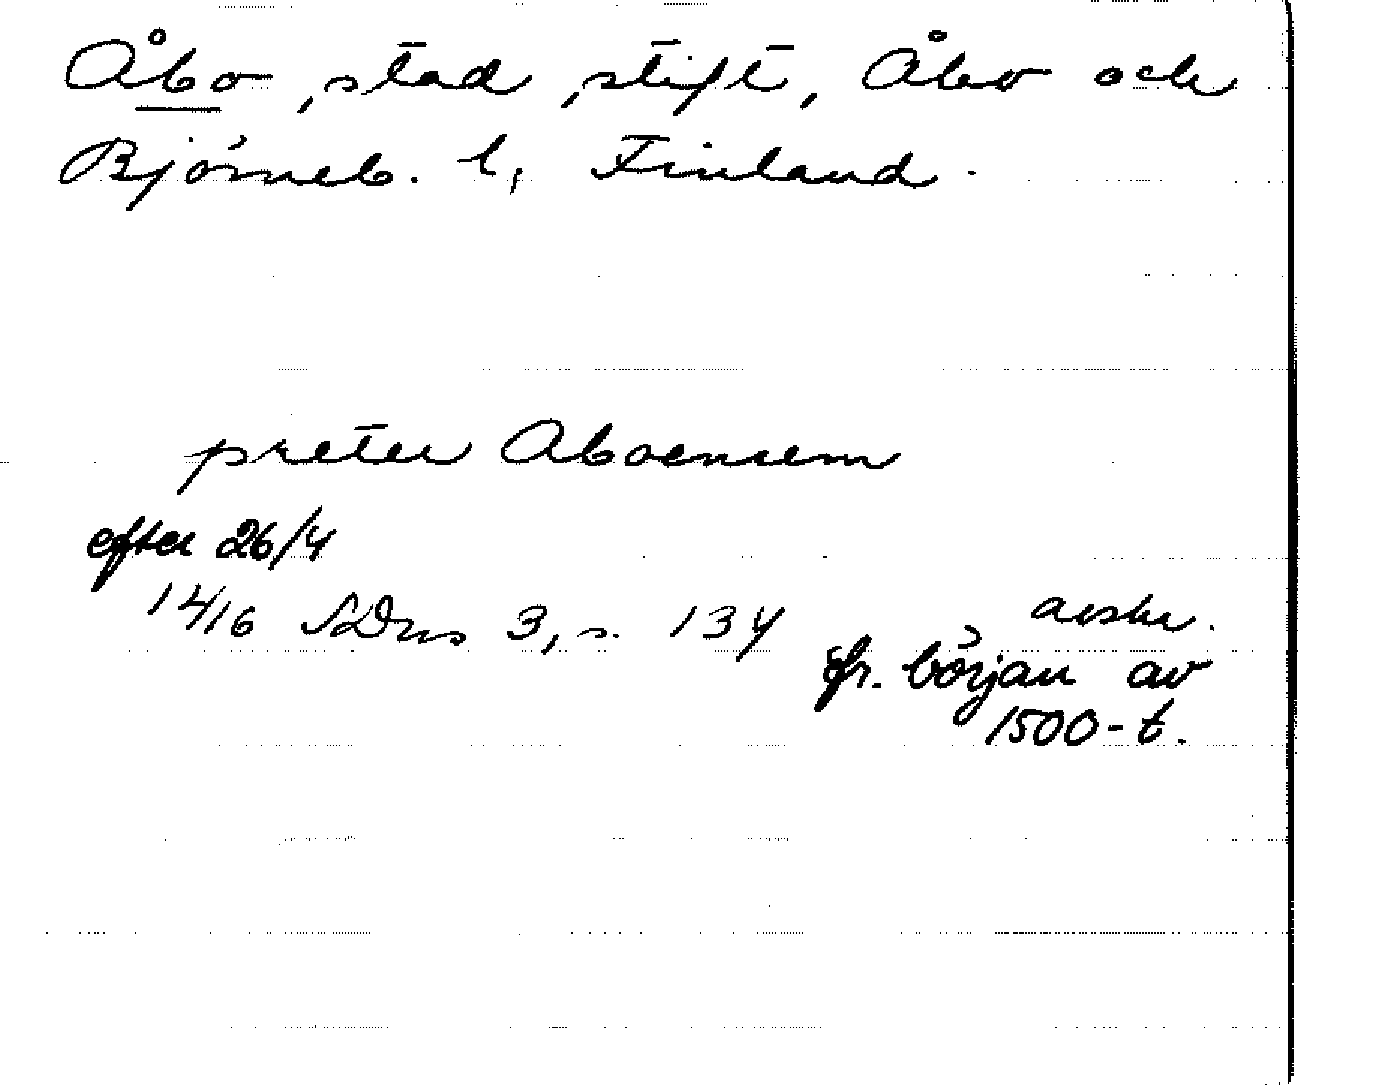 Åbo, stad, stift, Åbo och
Björneb. l, Finland.
preter Aboensem
efter 26/4
1416 SDns 3, s. 134
avskr.
fr. början av
1500-t.